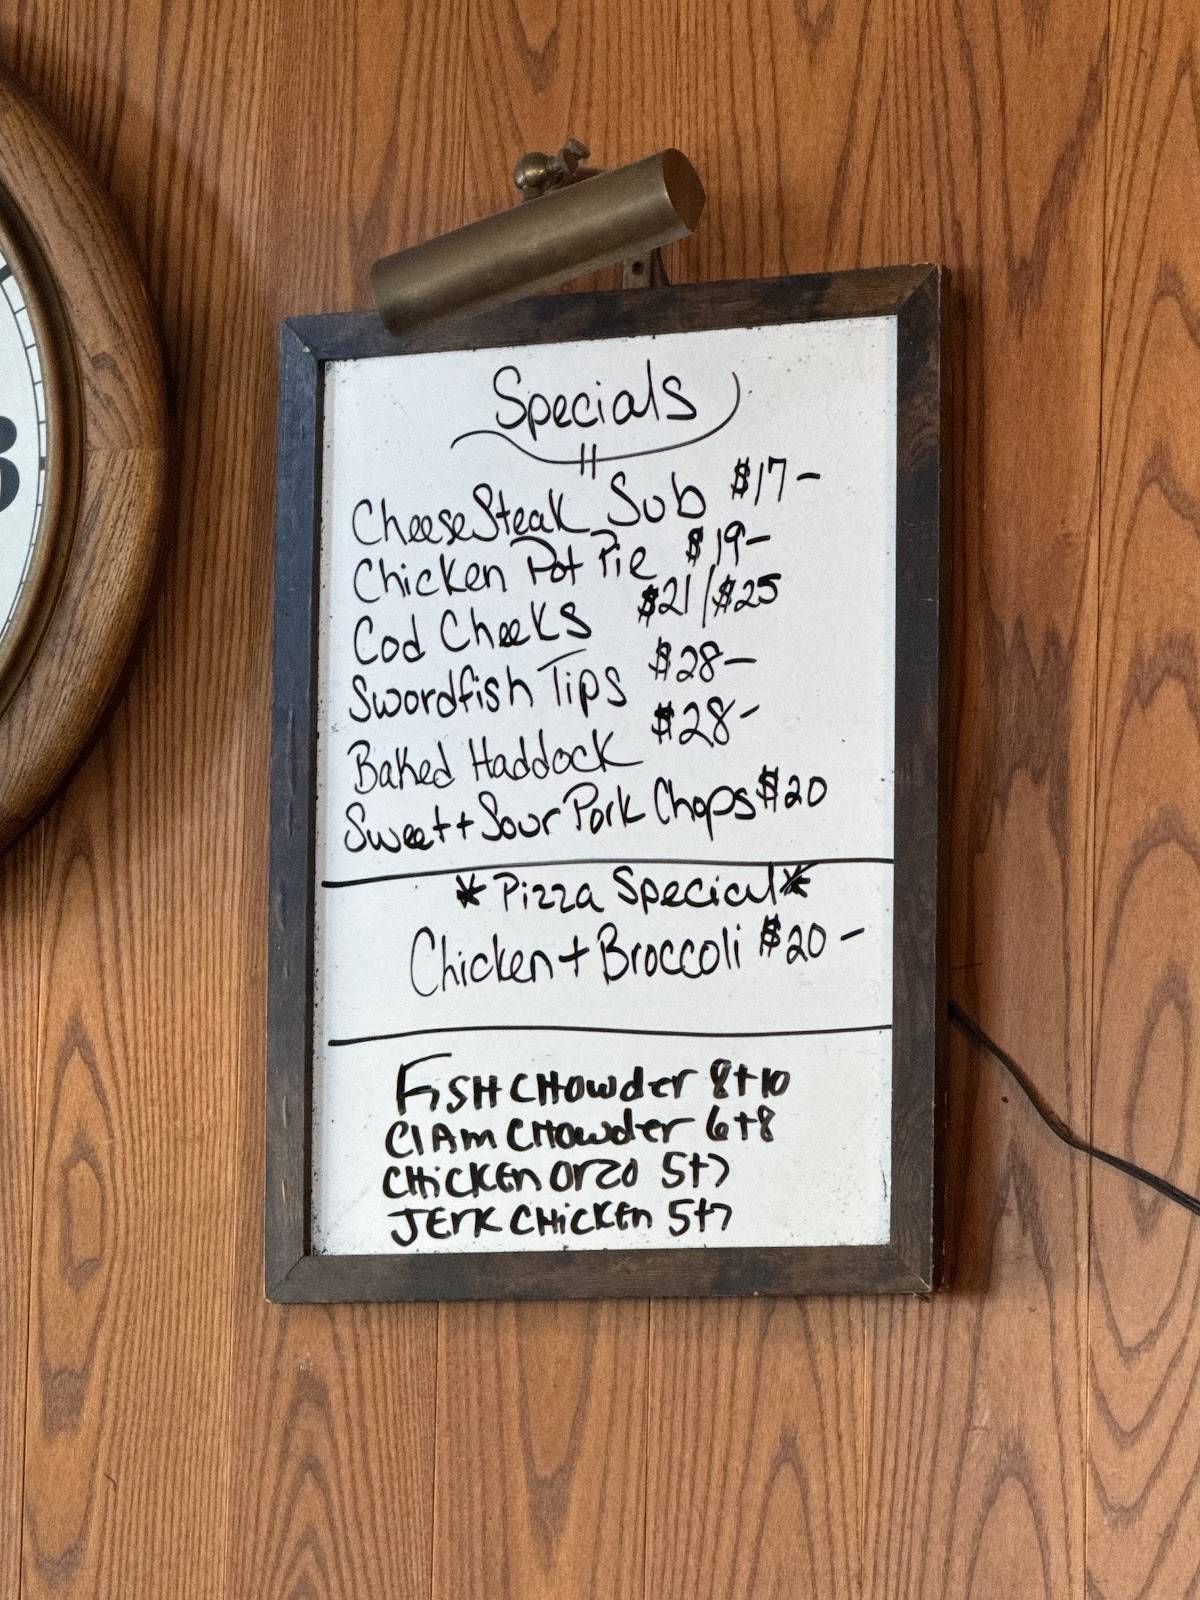 Specials
CheeseSteak Sub $17-
Chicken Pot Pie $19-
Cod Cheeks $21/$25
Swordfish Tips $28-
Baked Haddock $28-
Sweet + Sour Pork Chops $20
*Pizza Special*
Chicken + Broccoli $20-
FiSH CHowder 8+10
ClAm CHowder 6+8
CHiCKEn OrZO 5+7
JErK CHiCKEn 5+7
3